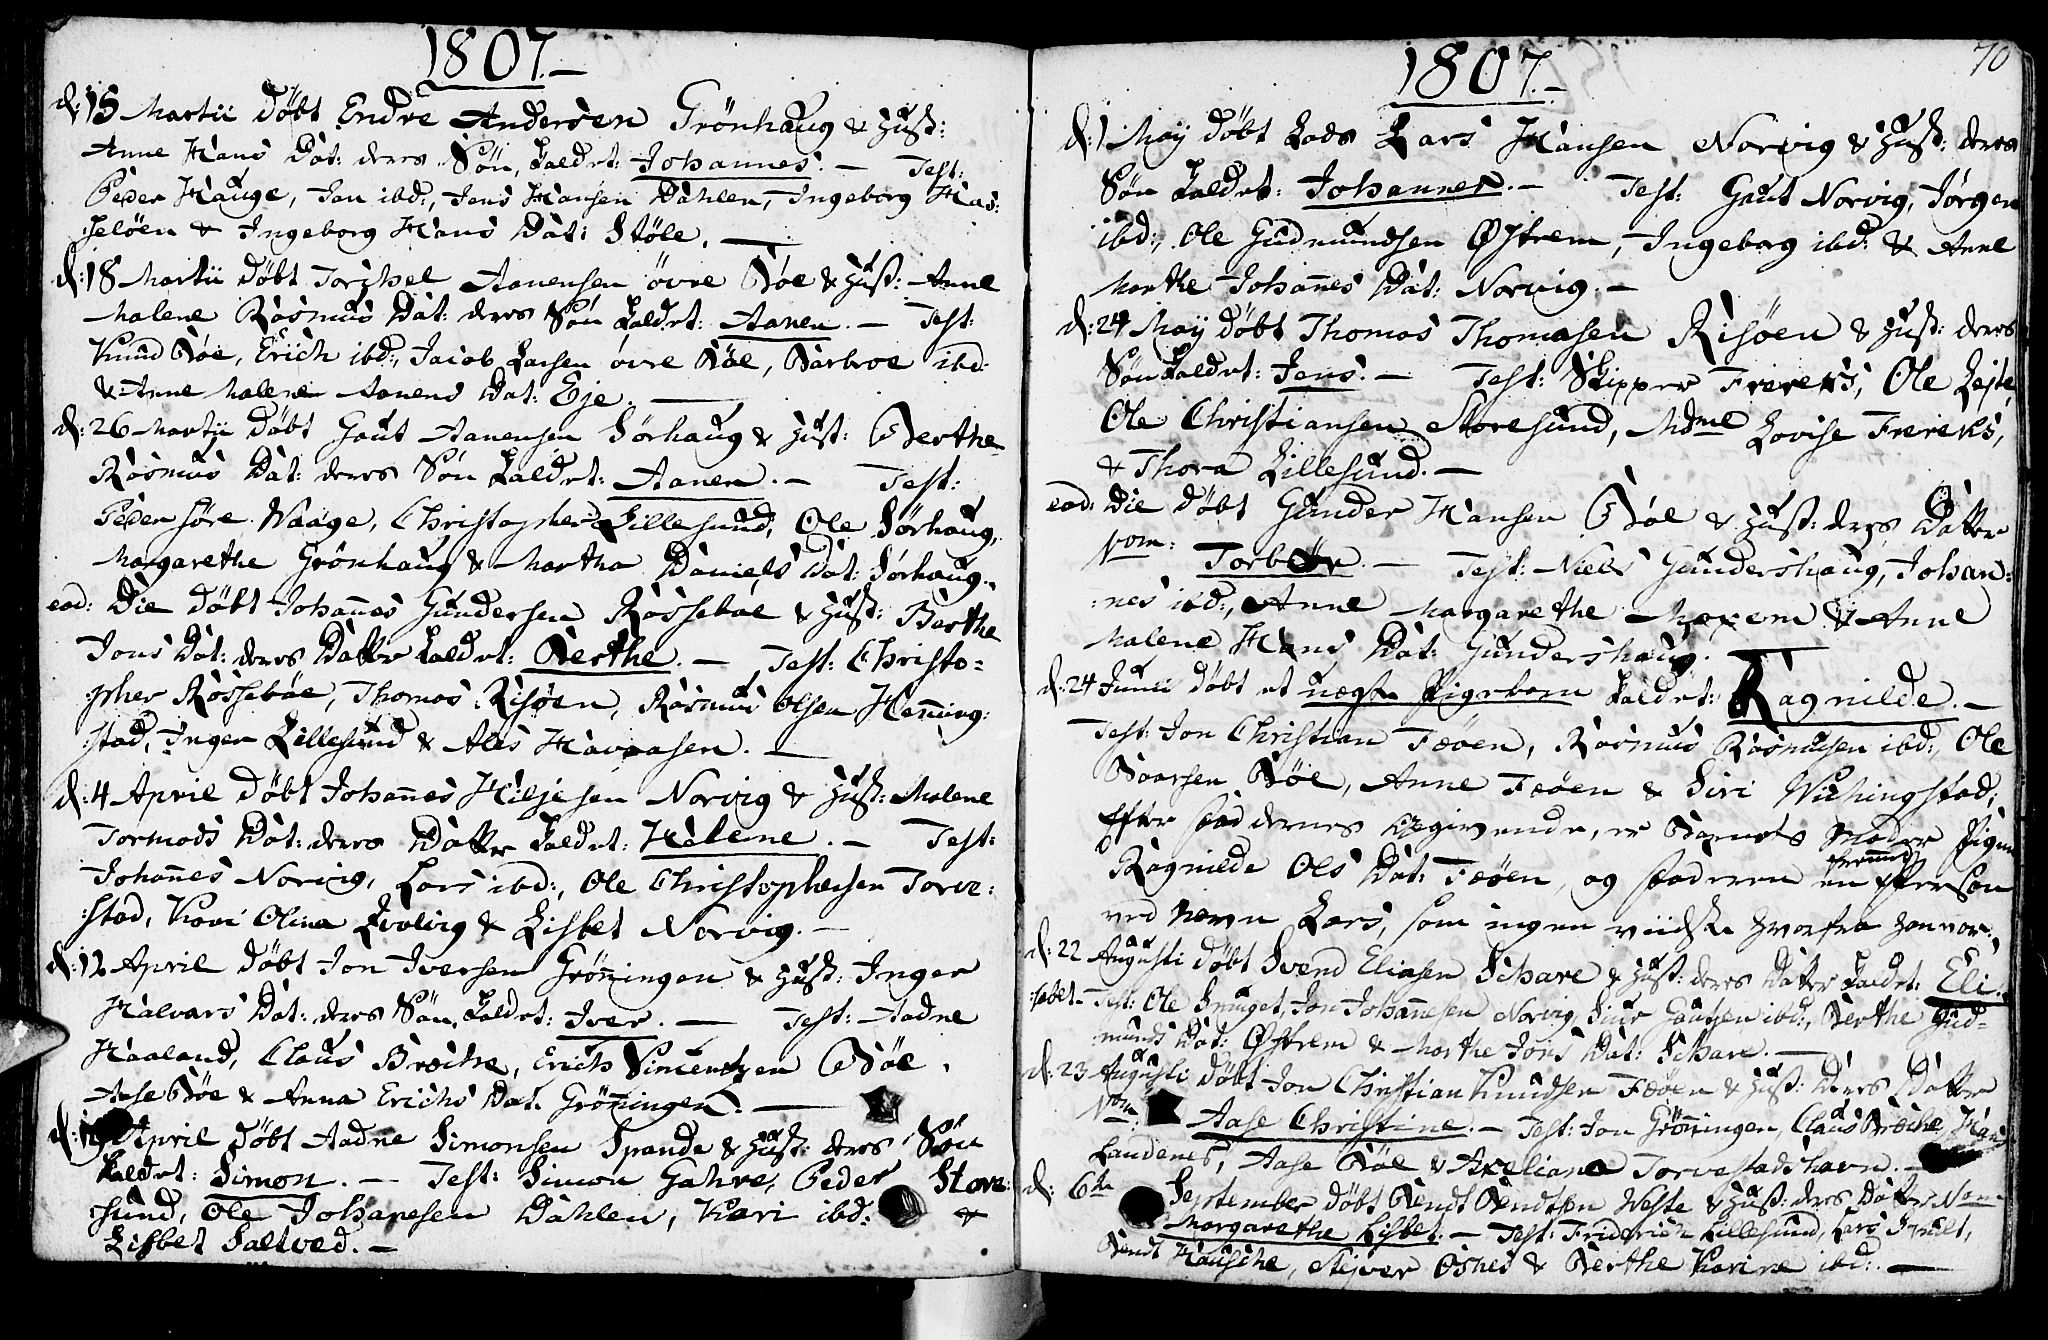 1807.–
d: 15 Martii döbt Endre Andersen Grönhaug & Hust:
Anne Hans Dat: deres Sön, kaldet: Johannes. – Test:
Peder Hauge, Jon ibd:, Jens Hansen Dahlen, Ingeborg Has:
:seløen & Ingeborg Hans Dat: Støle. —
d: 18 Martii döbt Torchel Aanensen övre Böe & Hust: Anne
Malene Rasmus Dat: deres Sön kaldet: Aanen. – Test:
Knud Böe, Erich ibd:, Jacob Larsen övre Böe, Barbroe ibd:
& Anne Malene Aanens Dat: Eje. —
d: 26 Martii döbt Gaut Aanensen Sörhaug & Hust: Berthe
Rasmus Dat: deres Sön kaldet: Aanen. – Test:
Peder søre Waage, Christopher Lillesund, Ole Sörhaug,
Margarethe Grönhaug & Martha Daniels Dat: Sörhaug.
eod: Die döbt Johañes Gundersen Rossebøe & Hust: Berthe
Jons Dat: deres Datter kaldet: Berthe. – Test: Christo=
:pher Rossebøe, Thomas Risøen, Rasmus Olsen Heñing:
:stad, Inger Lillesund & Ales Havaasen. –
d: 4 April döbt Johañes Hiljesen Norvig & Hust: Malene
Tormods Dat: deres Datter kaldet: Helene. – Test:
Johañes Norvig, Lars ibd:, Ole Christophersen Torve:
:stad, Kari Olina & Lisbet Norvig. –
d: 12 April döbt Jon Iversen Gröñingen & Hust: Inger
Halvars Dat: deres Sön, kaldet: Iver. – Test: Aadne
Haaland, Claus Broche, Erich Simentzen Böe,
Aase Böe & Anna Erichs Dat: Gröñingen. —
d: April döbt Aadne Simonsen Spande & Hust: deres Sön
kaldet: Simon. – Test: Simon Gahre, Peder Store:
:sund, Ole Johañesen Dahlen, Kari ibd: &
Lisbet Saltved. –
1807.–
70
d: 1 May döbt Lods Lars Hansen Norvig & Hust: deres
Sön kaldet: Johannes. – Test: Gaut Norvig, Jörgen
ibd:, Ole Gudmundsen Østrem, Ingeborg ibd: & Anne
Marthe Johañes Dat: Norvig. –
d: 24 May döbt Thomas Thomasen Risöen & Hust: deres
Sön kaldet: Jens. – Test: Skipper Frereks, Ole Lejte,
Ole Christiansen Storesund, Mdme Lovise Frereks,
& Thora Lillesund. –
eod: Die döbt Gunder Hansen Böe & Hust: deres Datter
Nom: Torbør. – Test: Niels Gundershaug, Johan:
:nes ibd:, Anne Margarethe & Anne
Malene Hans Dat: Gundershaug. —
d: 24 Junii döbt et uægte Pigebarn kaldet: Ragnilde. –
Test: Jon Christian Feöen, Rasmus Rasmusen ibd:, Ole
Baarsen Böe, Anne Feöen & Siri Wichingstad;
Efter faddernes Udgivende, er Barnets Moder Pigen
Ragnilde Ols Dat: Feöen, og faderen en fremmed Person
ved navn Lars, som ingen vidste hvorfra han var.
d: 22 Augusti döbt Svend Eliasen Schare & Hust: deres Datter kaldet: Eli:
:sabet – Test: Ole Snuget, Jon Johañesen Norvig, Siur Gautsen ibd:, Berthe Gud=
:munds Dat: Østrem & Marthe Jons Dat: Schare. –
d: 23 Augusti döbt Jon Christian Knudsen Feöen & Hust: deres Datter
Nom: Aase Christine. – Test: Jon Gröñingen, Claus Broche, Hans
Landenes, Aase Böe & Axeliane Torvestadshavn. –
d: 6te September döbt Bendt Bendtsen Weste & Hust: deres Datter Nom:
Margarethe Lisbet. – Test: Friderich Lillesund, Lars
Bendt Hausche, Osnes & Berthe Karine ibd: —